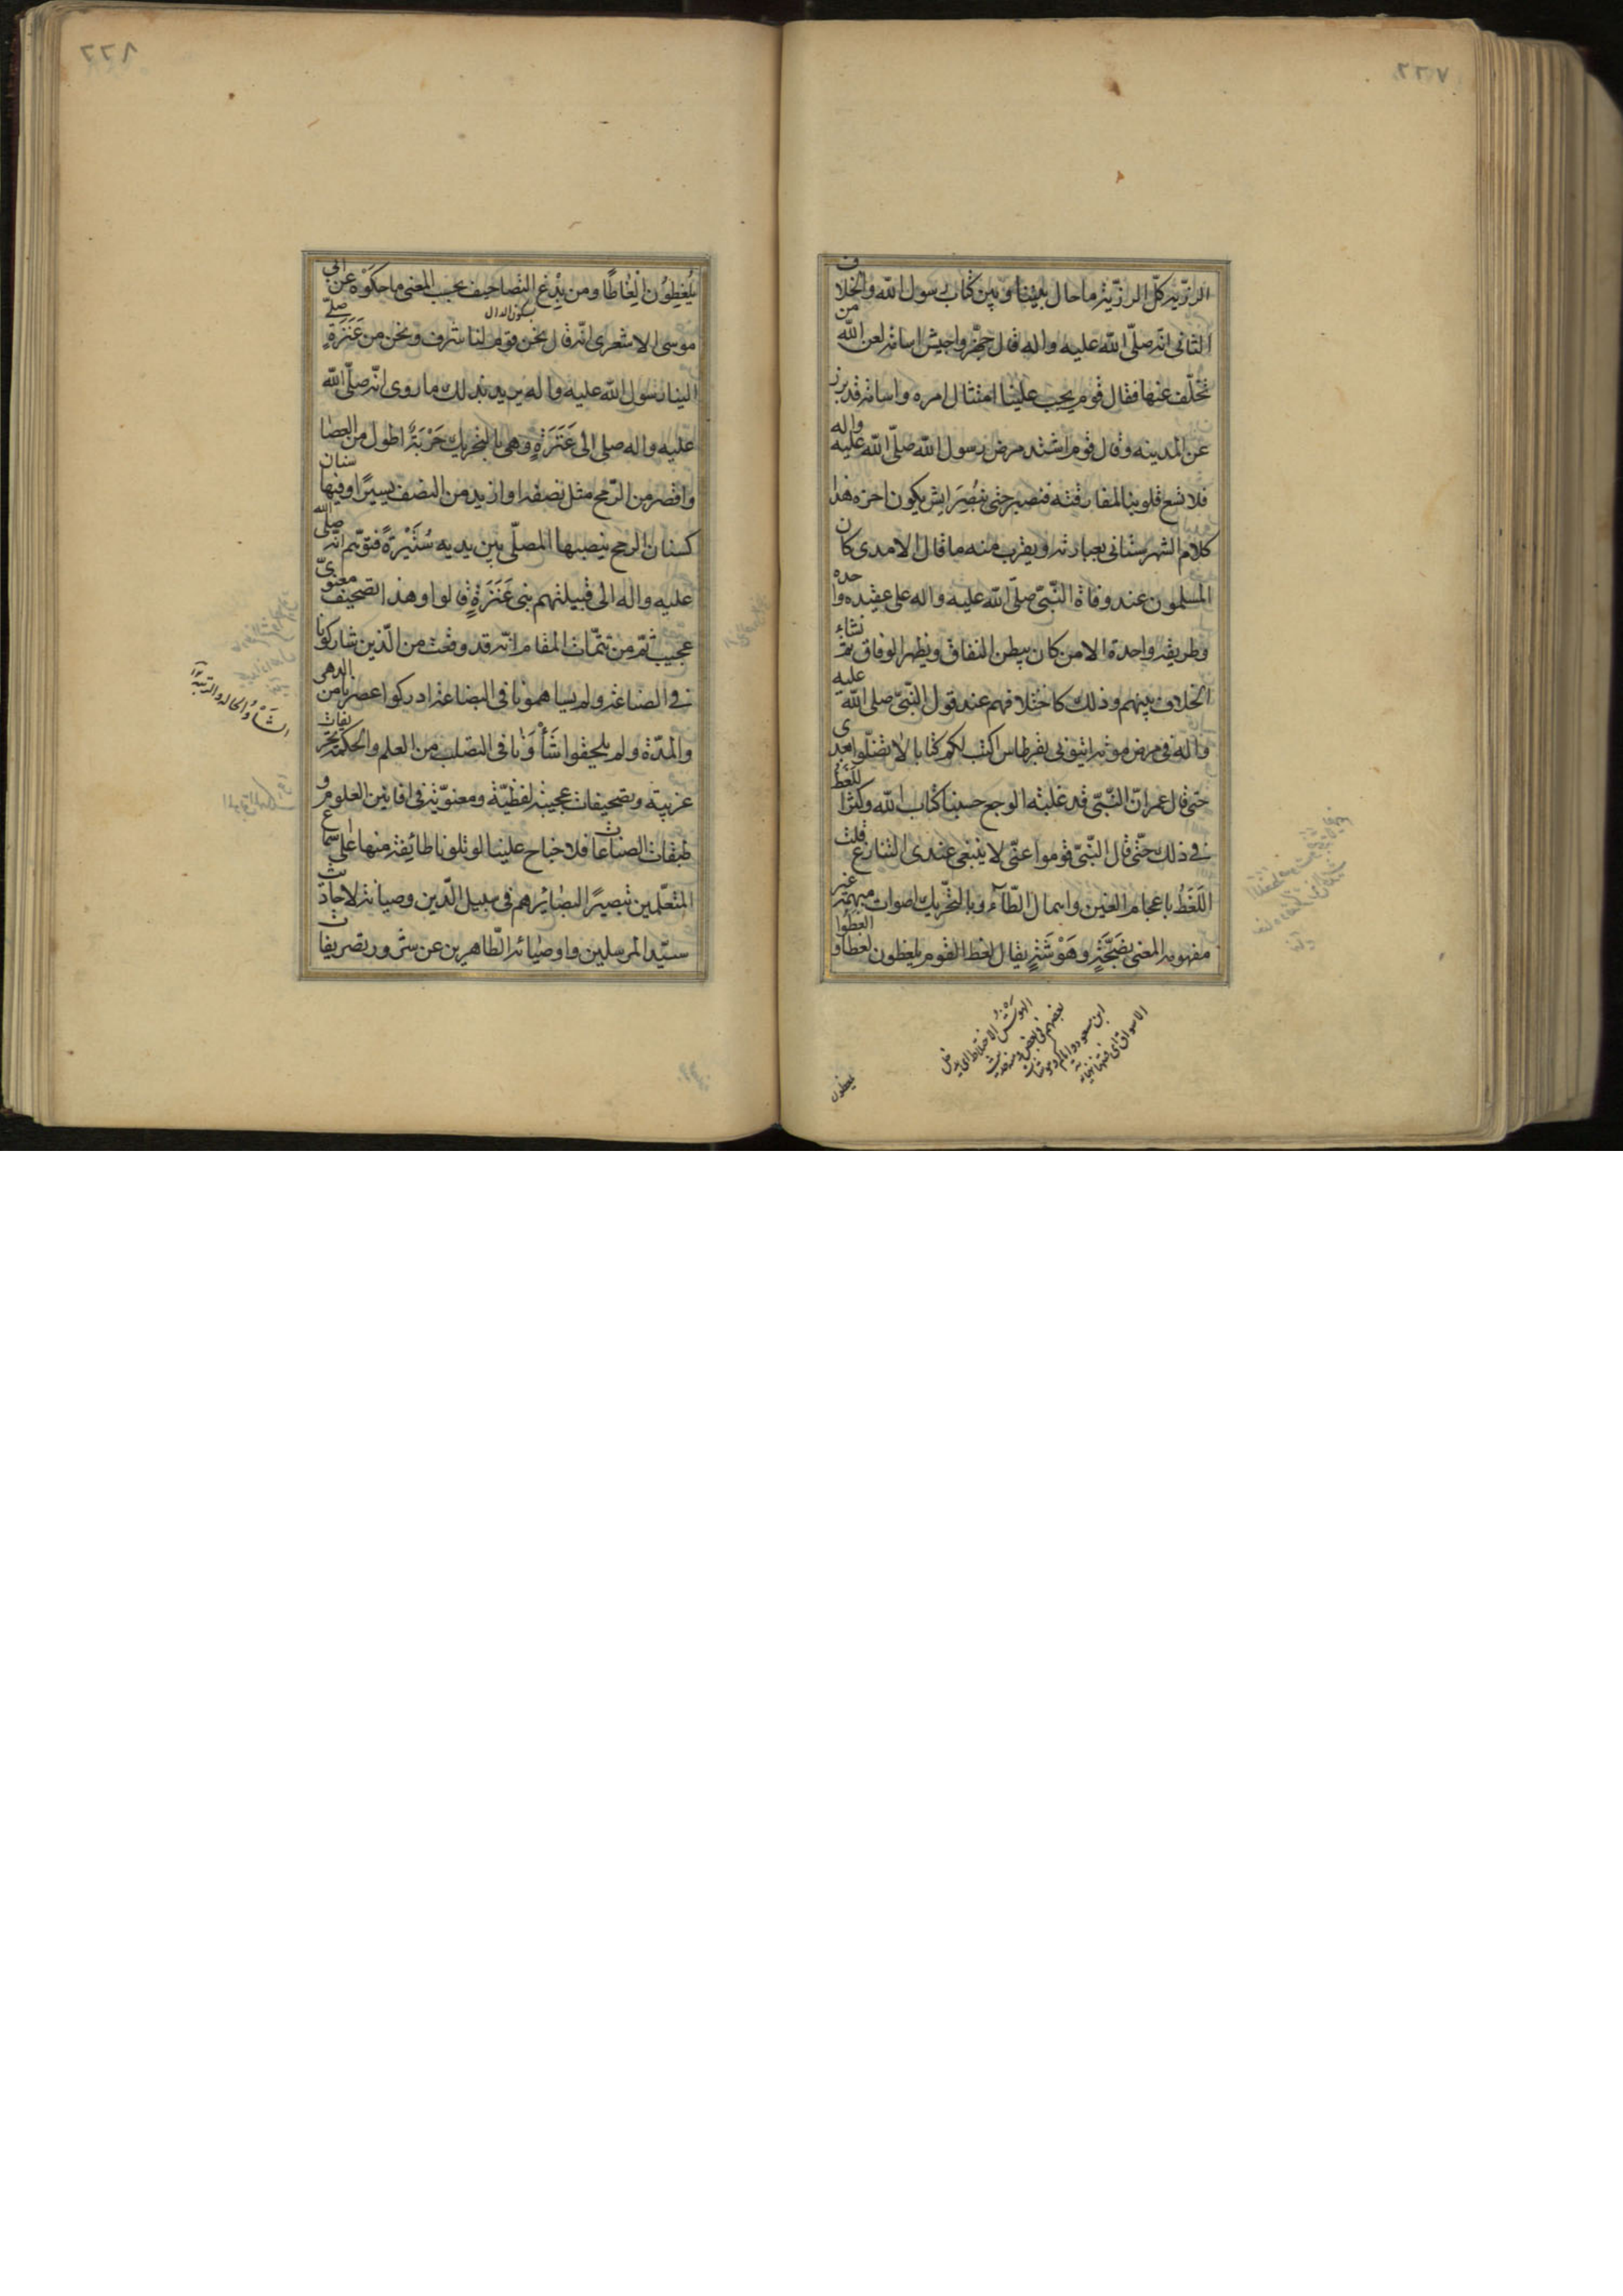 الرزية كل الرزية ما حال بيننا وبين كتاب رسول الله والخلاف
الثاني انه صلى الله عليه واله قال جهزوا جيش اسامه لعن الله من
تخلف عنها فقال قوم يجب علينا امتثال امره واسامه قد برز
عن المدينه وقال قوم اشتد مرض رسول الله صلى الله عليه واله
فلا تسع قلوبنا لمفارقته فنصبر حتى نبصر ايش يكون اخره هذا
كلام الشهرستاني بعبارته ويقرب منه ما قال الامدى كان
المسلمون عند وفاة النبي صلى الله عليه واله على عقيده واحده
وطريقه واحدة الا من كان يبطن النفاق ويظهر الوفاق ثم نشاء
الخلاف بينهم وذلك كاختلافهم عند قول النبي صلى الله عليه
واله في مرض موته ائتوني بقرطاس اكتب لكم كتابا لا تضلوا بعدى
حتى قال عمر ان النبي قد غلبه الوجع حسبنا كتاب الله وكثر اللغط
في ذلك حتى قال النبي قوموا عني لا ينبغي عندى التنازع قلت
اللغط باعجام الغين واهمال الطآء وبالتحريك اصوات مبهمة غير
مفهومه المعنى بضجة وهوشة يقال لغط القوم يلغطون لغطا و الغطوا
الهوشة الاختلاط اى يدخل
بعضهم في بعض ومنه حديث
ابن مسعود واياكم وهوشات
الاسواق اى فتنها
يلغطون
يلغطون الغاطا ومن بدع التصاحيف بحسب المعنى ما حكوه عن ابي
بسكون الدال
موسى الاشعرى انه قال نحن قوم لنا شرف ونحن من عنزة صلى
الينا رسول الله عليه واله يريد بذلك ما روى انه صلى الله
عليه واله صلى الى عنزة وهي بالتحريك حربة اطول من العصا
واقصر من الرمح مثل نصفه او ازيد من النصف يسيرا وفيها سنان
كسنان الرمح ينصبها المصلي بين يديه سترة فتوهم انه صلى الله
عليه واله الى قبيلتهم بني عنزة قالوا وهذا تصحيف معنوي
عجيب ثم من تتمات المقام انه قد وقعت من الذين شاركونا
في الصناعة ولم يساهمونا في البضاعة ادركوا عصرنا من الدهر
والمدة ولم يلحقوا شأونا في النصاب من العلم والحكمة تحريفات
غريبة وتصحيفات عجيبة لفظية ومعنوية في افانين العلوم و
طبقات الصناعات فلا جناح علينا لو تلونا طائفة منها على سماع
المتعلمين تبصيرا لبصائرهم في سبيل الدين وصيانة لاحاديث
سيد المرسلين واوصيائه الطاهرين عن ستور تصريفات
الشأو الحاله والرتبة